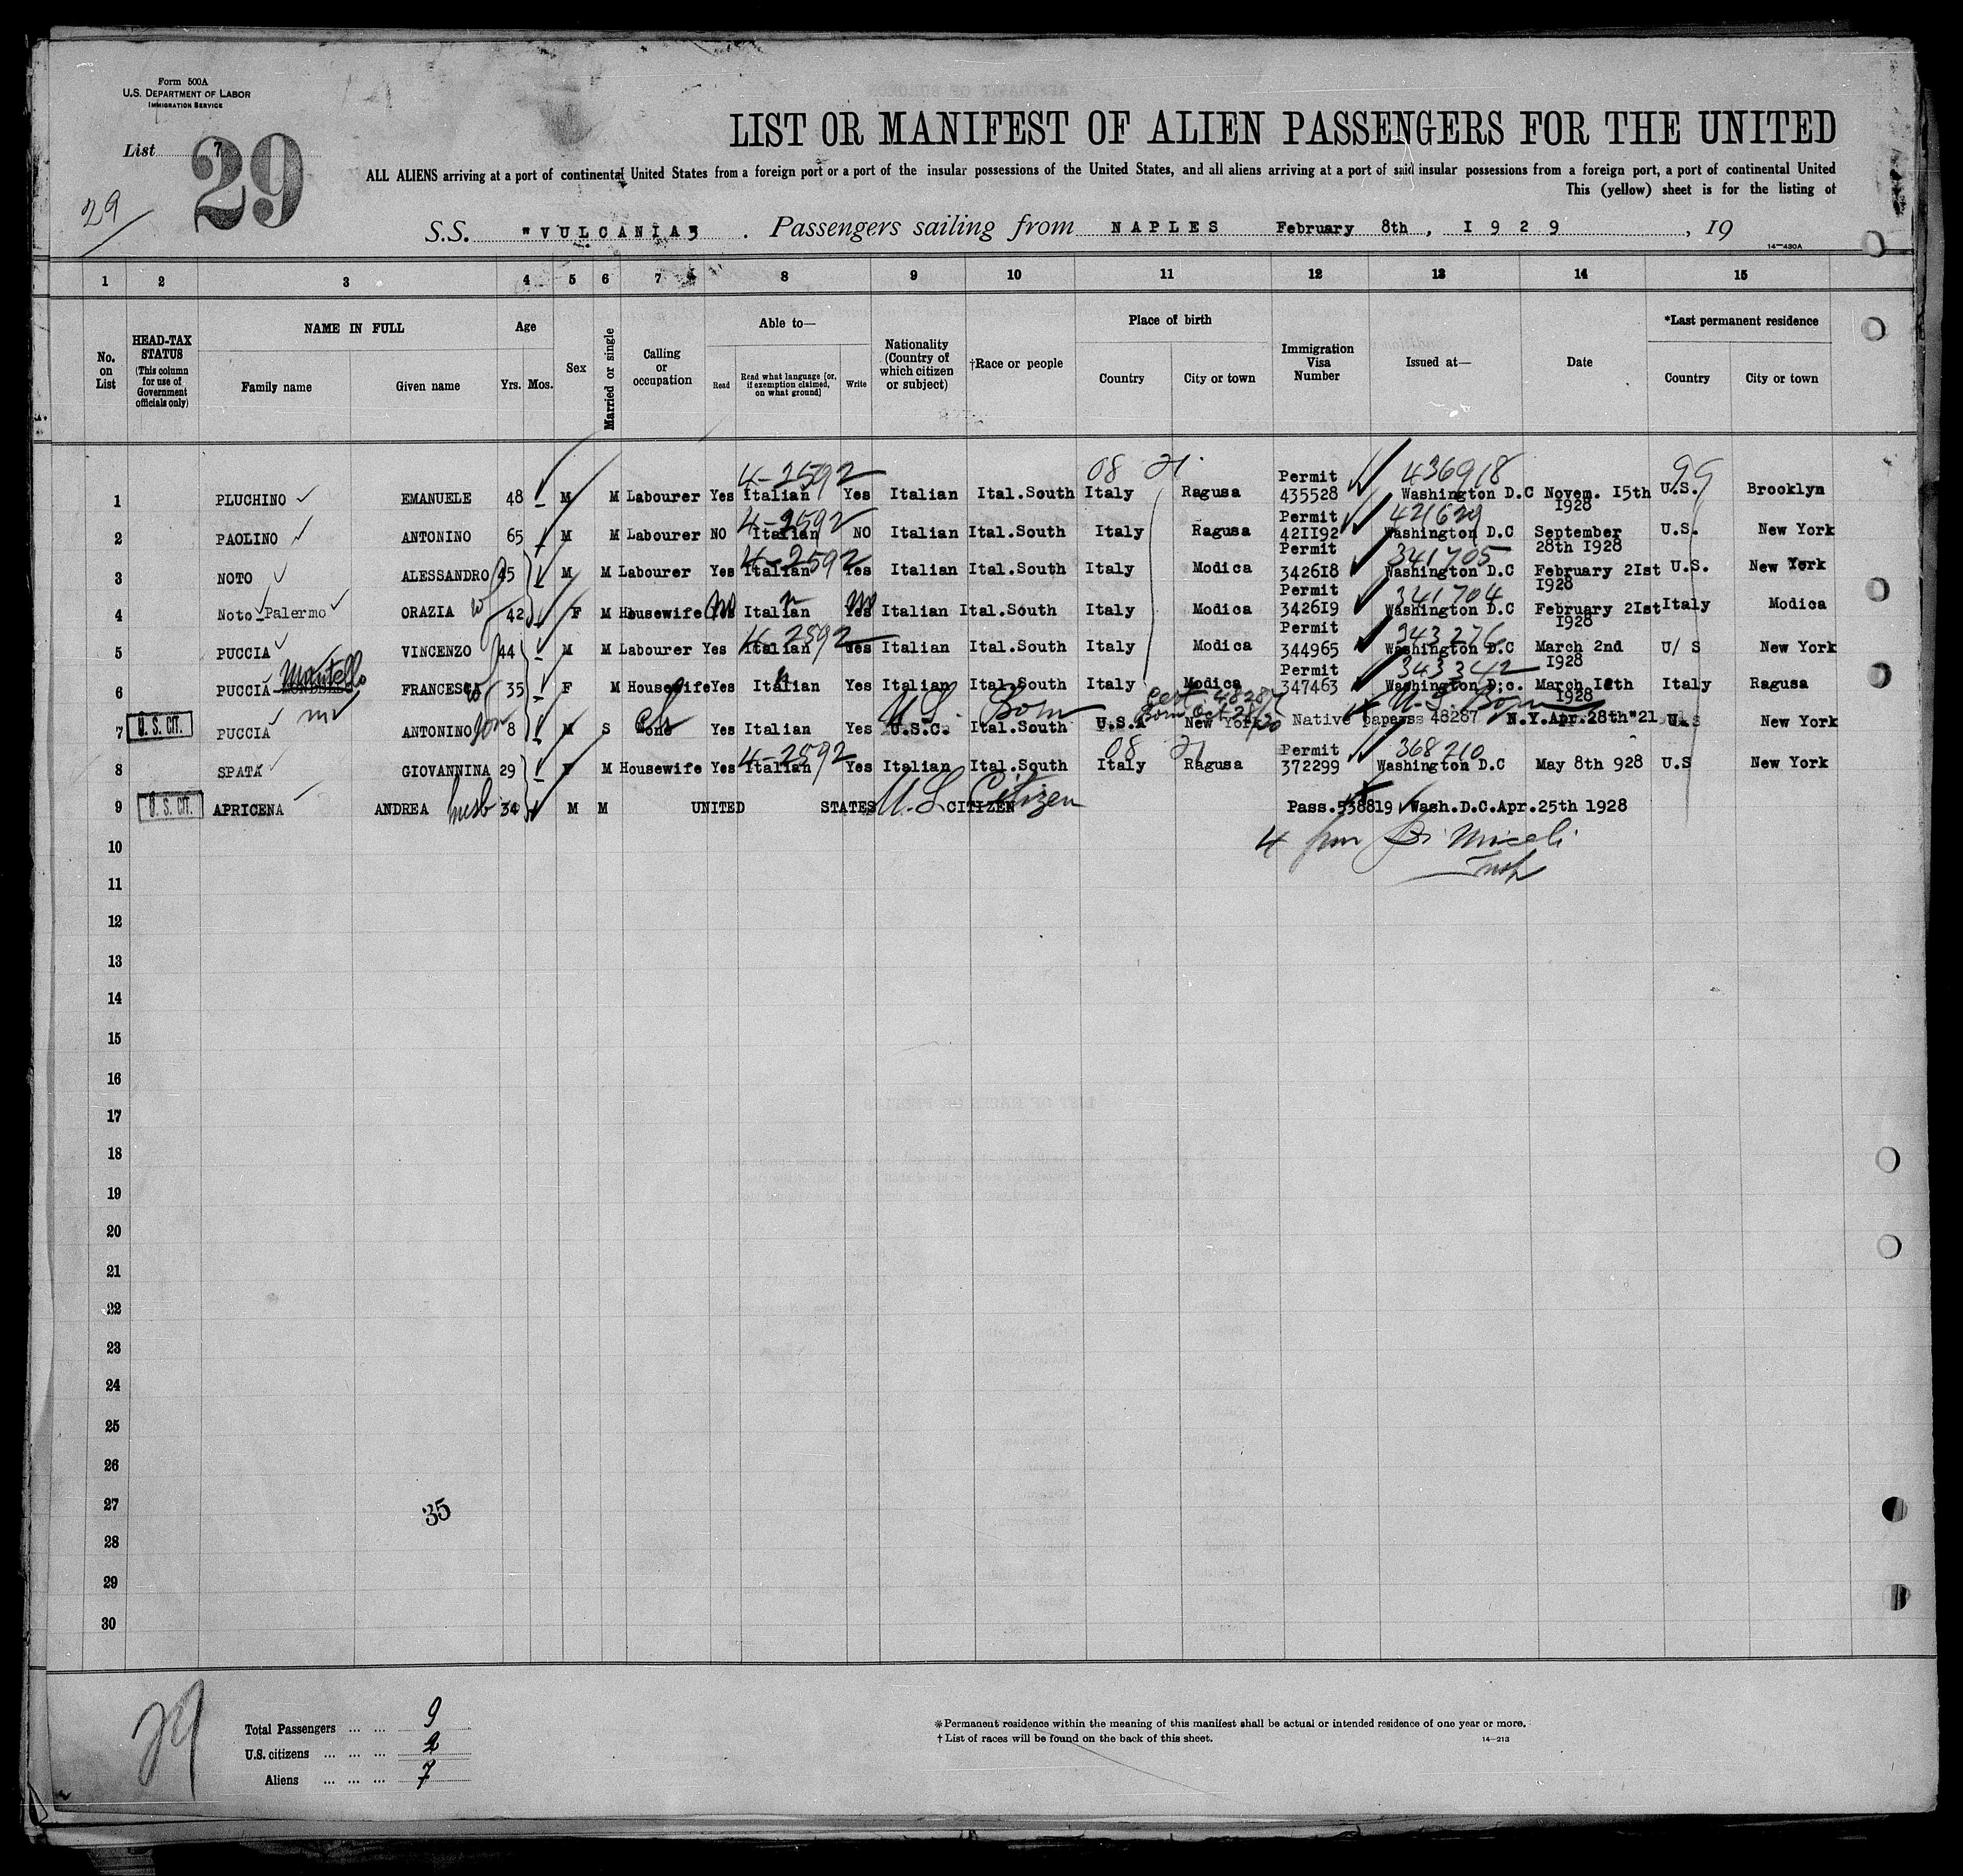 Form 500A
U.S. DEPARTMENT OF LABOR
IMMIGRATION SERVICE
List 7
29
29
LIST OR MANIFEST OF ALIEN PASSENGERS FOR THE UNITED
ALL ALIENS arriving at a port of continental United States from a foreign port or a port of the insular possessions of the United States, and all aliens arriving at a port of said insular possessions from a foreign port, a port of continental United
This (yellow) sheet is for the listing of
S.S. "VULCANIA" . Passengers sailing from NAPLES February 8th, 1929 , 19
14—430A
1 2 3 4 5 6 7 8 9 10 11 12 13 14 15
No. on List
HEAD-TAX STATUS (This column for use of Government officials only)
NAME IN FULL
Family name Given name
Age
Yrs. Mos.
Sex
Married or single
Calling or occupation
Able to—
Read Read what language [or, if exemption claimed, on what ground] Write
Nationality (Country of which citizen or subject)
†Race or people
Place of birth
Country City or town
Immigration Visa Number
Issued at—
Date
*Last permanent residence
Country City or town
4-2592 08 21 436918 99
1 PLUCHINO EMANUELE 48 M M Labourer Yes Italian Yes Italian Ital.South Italy Ragusa Permit 435528 Washington D.C Novem. I5th I928 U.S. Brooklyn
4-2592 421629
2 PAOLINO ANTONINO 65 M M Labourer NO Italian NO Italian Ital.South Italy Ragusa Permit 42II192 Washington D.C September 28th I928 U.S. New York
4-2592 341705
3 NOTO ALESSANDRO 45 M M Labourer Yes Italian Yes Italian Ital.South Italy Modica Permit 3426I8 Washington D.C February 2Ist I928 U.S. New York
341704
4 Noto-Palermo ORAZIA wf 42 F M Housewife No Italian No Italian Ital.South Italy Modica Permit 3426I9 Washington D.C February 2Ist I928 Italy Modica
4-2592 343276
5 PUCCIA VINCENZO 44 M M Labourer Yes Italian Yes Italian Ital.South Italy Modica Permit 344965 Washington D.C March 2nd I928 U/ S New York
343342
6 PUCCIA FRANCESCA wf 35 F M Housewife Yes Italian Yes Italian Ital.South Italy Modica Permit 347463 Washington D.c. March I2th I928 Italy Ragusa
U.S. Born U.S. Born
U.S. CIT.
7 PUCCIA ANTONINO son 8 M S Yes Italian Yes U.S.C. Ital.South U.S.A New York Native papers 48287 N.Y.Apr.28th"21 U.S New York
4-2592 08 21 368210
8 SPATA GIOVANNINA 29 F M Housewife Yes Italian Yes Italian Ital.South Italy Ragusa Permit 372299 Washington D.C May 8th 928 U.S New York
U.S. CIT.
9 APRICENA ANDREA husb 34 M M UNITED STATES CITIZEN U.S. Citizen Pass.538819 Wash.D.C.Apr.25th 1928
10
11
12
13
14
15
16
17
18
19
20
21
22
23
24
25
26
27
35
28
29
30
29
Total Passengers ... ... 9
U.S. citizens ... ... ... 2
Aliens ... ... ... 7
*Permanent residence within the meaning of this manifest shall be actual or intended residence of one year or more.
† List of races will be found on the back of this sheet.
14—213